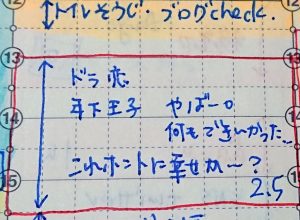 12
トイレそうじ・ブログcheck.
13
ドラ恋
年下王子 やばーっ
14
何もできなかった…
これホントに幸せか〜?
15
2.5